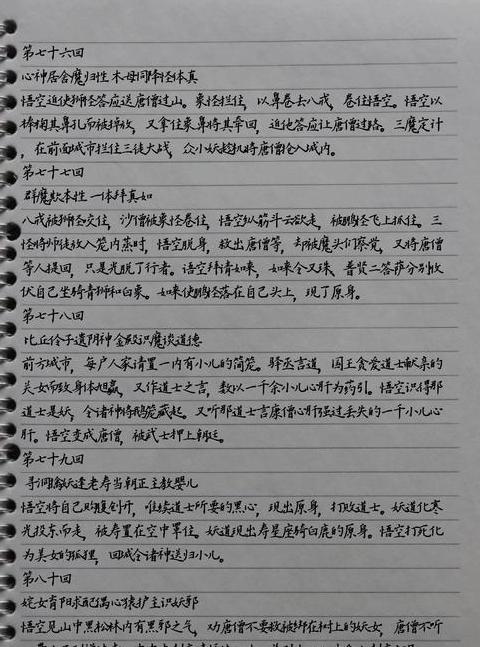 第七十六回
心神居舍魔归性 木母同降怪体真
悟空迫使狮怪答应送唐僧过山。象怪拦住，以鼻卷去八戒，卷住悟空。悟空以
棒捅其鼻孔而被掉放，又拿住象鼻将其牵回，迫他答应让唐僧过路。三魔定计
，在前面城市拦住三徒大战，众小妖趁机将唐僧抢入城内。
第七十七回
群魔欺本性 一体拜真如
八戒被狮怪咬住，沙僧被象怪卷住，悟空纵筋斗云欲走，被鹏怪飞上抓住。三
怪将师徒放入笼内蒸时，悟空脱身，救出唐僧等，却被魔头们察觉，又将唐僧
等人捉回，只是光脱了行者。语空拜请如来，如来令文殊、普贤二菩萨分别收
伏自己坐骑青狮和白象。如来使鹏怪落在自己头上，现了原身。
第七十八回
比丘怜子遣阴神金殿识魔谈道德
前方城市，每户人家请置一内有小儿的笼。驿丞言道，国王贪爱道士献亲的
美女而致身体尪羸，又作道士之言，数以一千余小儿心肝为药引。悟空识得那
道士是妖，令诸神将鹅笼藏起。又听那道士言唐僧心肝强过丢失的一千小儿心
肝。悟空变成唐僧，被武士押上朝廷。
第七十九回
寻洞擒妖逢老寿当朝正主救婴儿
悟空将自己胸腹剖开，唯续道士所要的黑心，现出原身，打败道士。妖道化寒
光投东而走，被寿置在空中罩住。妖道现出寿星座骑白鹿的原身。悟空打死化
为美女的狐狸，回城令诸神送归小儿。
第八十回
姹女育阳求配偶心猿护主识妖邪
悟空见山中黑松林内有黑邪之气，劝唐僧不要救被绑在树上的妖女，唐僧不听